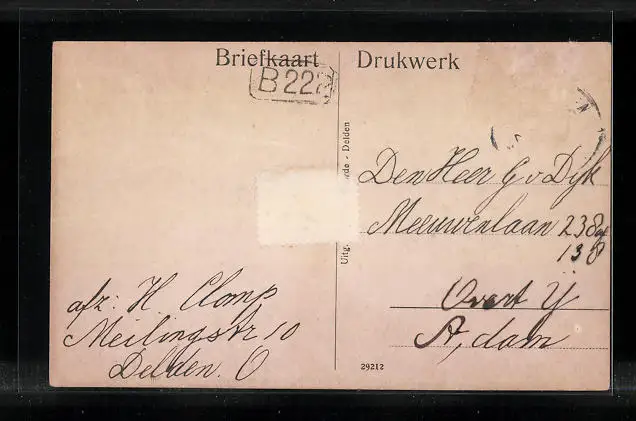 Briefkaart Drukwerk
B 222
Uitg. rde - Delden
Den Heer G v Dijk
Meeuwenlaan 238
138
Overt IJ
A, dam
afz: H. Clomp
Meilingstr 10
Delden. O
29212